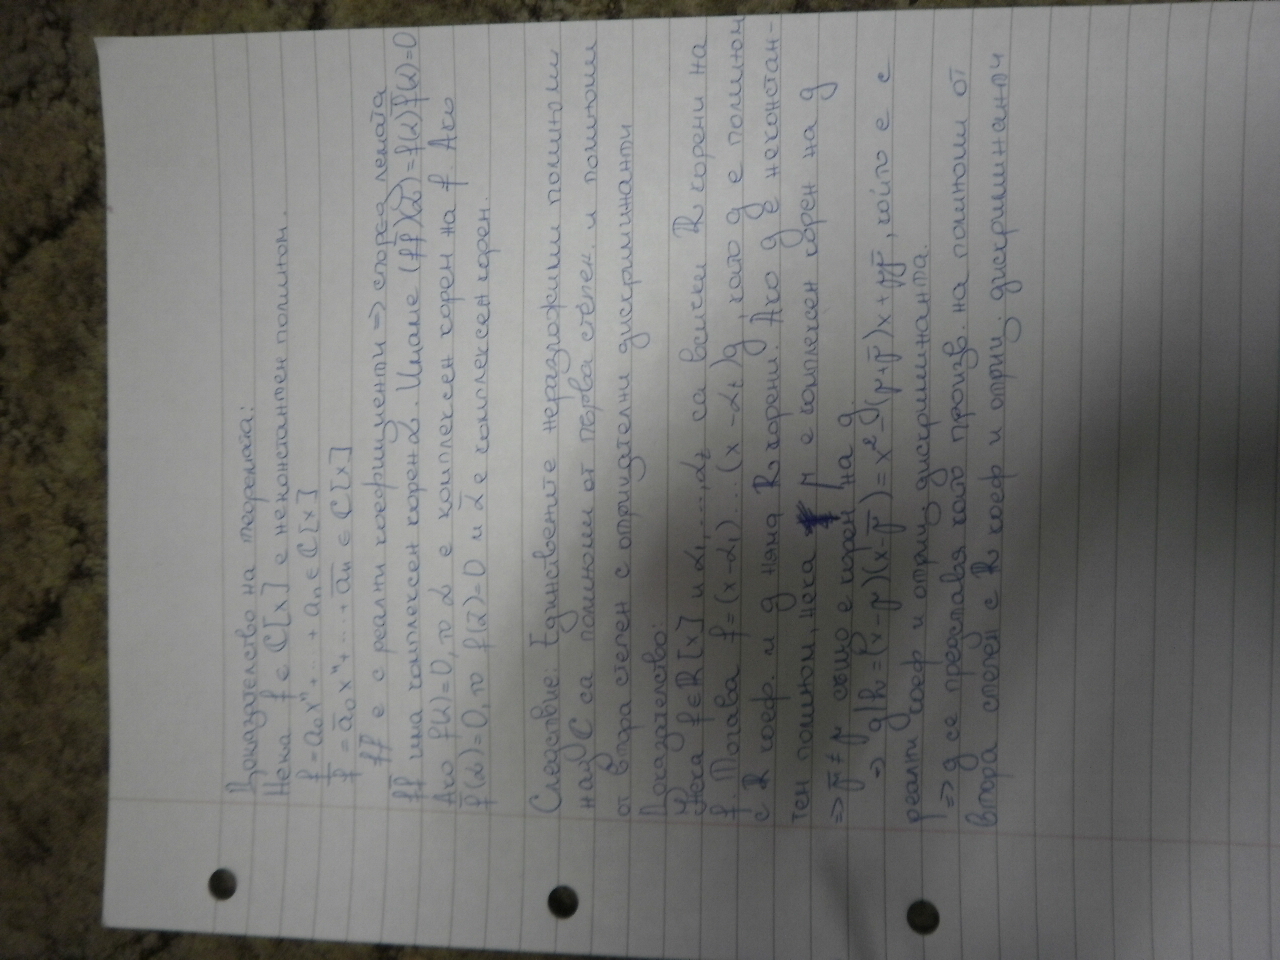 Доказателство на теоремата:
Нека f ∈ ℂ[x] е неконстантен полином.
f = a₀xⁿ + ... + aₙ ∈ ℂ[x]
f̅ = a̅₀xⁿ + ... + a̅ₙ ∈ ℂ[x]
ff̅ е с реални коефициенти => според лемата
ff̅ има комплексен корен α. Имаме (ff̅)(α) = f(α)f̅(α) = 0
Ако f(α) = 0, то α е комплексен корен на f. Ако
f̅(α) = 0, то f(α̅) = 0 и α̅ е комплексен корен.
Следствие: Единствените неразложими полиноми
над ℂ са полиноми от първа степен и полиноми
от втора степен с отрицателни дискриминанти
Доказателство:
Нека f ∈ ℝ[x] и α₁, ..., αₜ са всички ℝ корени на
f. Тогава f = (x - α₁) ... (x - αₜ)g, като g е полином
с ℝ коеф. и g няма ℝ корени. Ако g е неконстан-
тен полином, нека μ е комплексен корен на g
=> μ̅ ≠ μ също е корен на g.
=> g | h = (x - μ)(x - μ̅) = x² - (μ + μ̅)x + μμ̅, който е с
реални коеф и отриц. дискриминанта.
=> g се представя като произв. на полиноми от
втора степен с ℝ коеф и отриц. дискриминанти